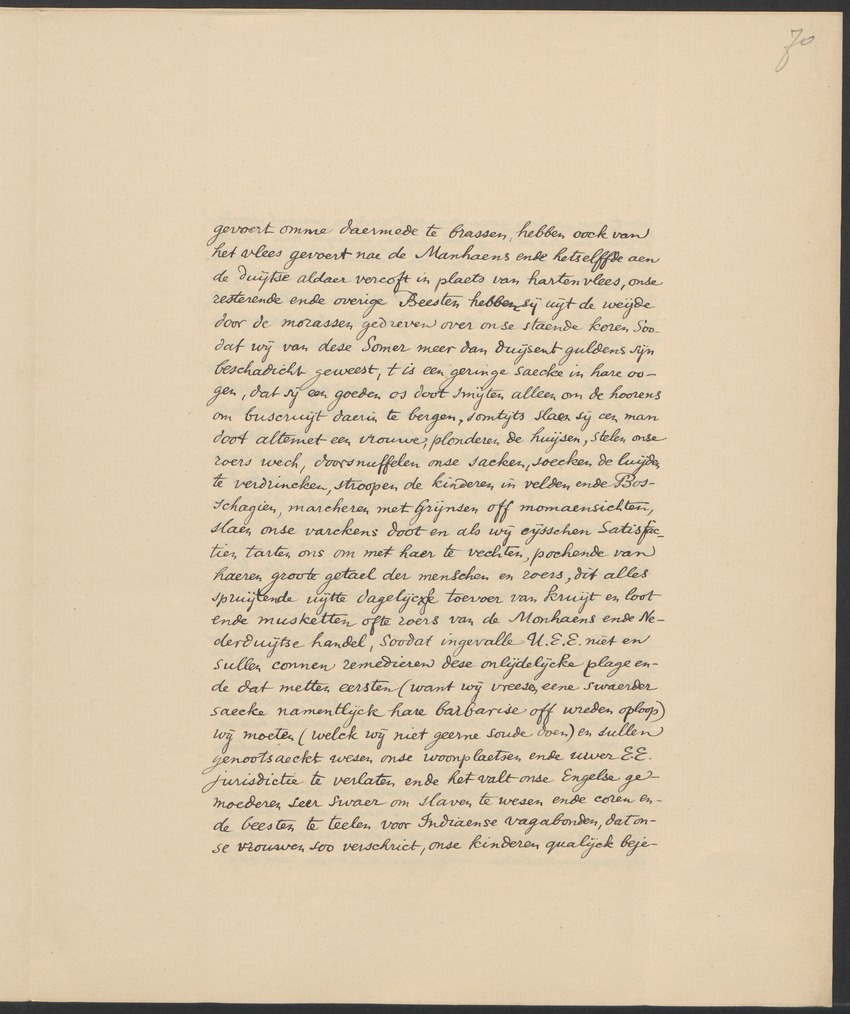 70
gevoert omme daermede te brassen, hebben oock van
het vlees gevoert nae de Manhaens ende hetselffde aen
de duijtse aldaer vercoft in plaets van hartenvlees, onse
resterende ende overige Beesten hebben sij uijt de weijde
door de morassen gedreven over onse staende koren Soo-
dat wij van dese Somer meer dan duijsent guldens sijn
beschadicht geweest, t is een geringe saecke in hare oo-
gen, dat sij een goeden os doot smijten alleen om de hoorens
om buscruijt daerin te bergen, somtijts slaen sij een man
doot altemet een vrouwe, plonderen de huijsen, stelen onse
roers wech, doorsnuffelen onse sacken, soecken de luijden
te verdrincken, stroopen de kinderen in velden ende Bos-
schagien, marcheren met Grijnsen off momaensichten,
slaen onse varckens doot en als wij eijsschen Satisfac-
tien tarten ons om met haer te vechten, pochende van
haeren groote getael der menschen en roers, dit alles
spruijtende uijtte dagelijcxse toevoer van kruijt en loot
ende musketten ofte roers van de Monhaens ende Ne-
derduijtse handel, Soodat ingevalle U.E.E. niet en
sullen connen remedieren dese onlijdelijcke plage en-
de dat metten eersten (want wij vreesen eene swaerder
saecke namentlijck hare barbarise off wreden oploop)
wij moeten (welck wij niet geerne soude doen) en sullen
genootsaeckt wesen onse woonplaetsen ende uwer E.E.
jurisdictie te verlaten ende het valt onse Engelse ge-
moederen seer swaer om slaven te wesen ende coren en-
de beesten te teelen voor Indiaense vagabonden, dat on-
se vrouwen soo verschrict, onse kinderen qualijck beje-